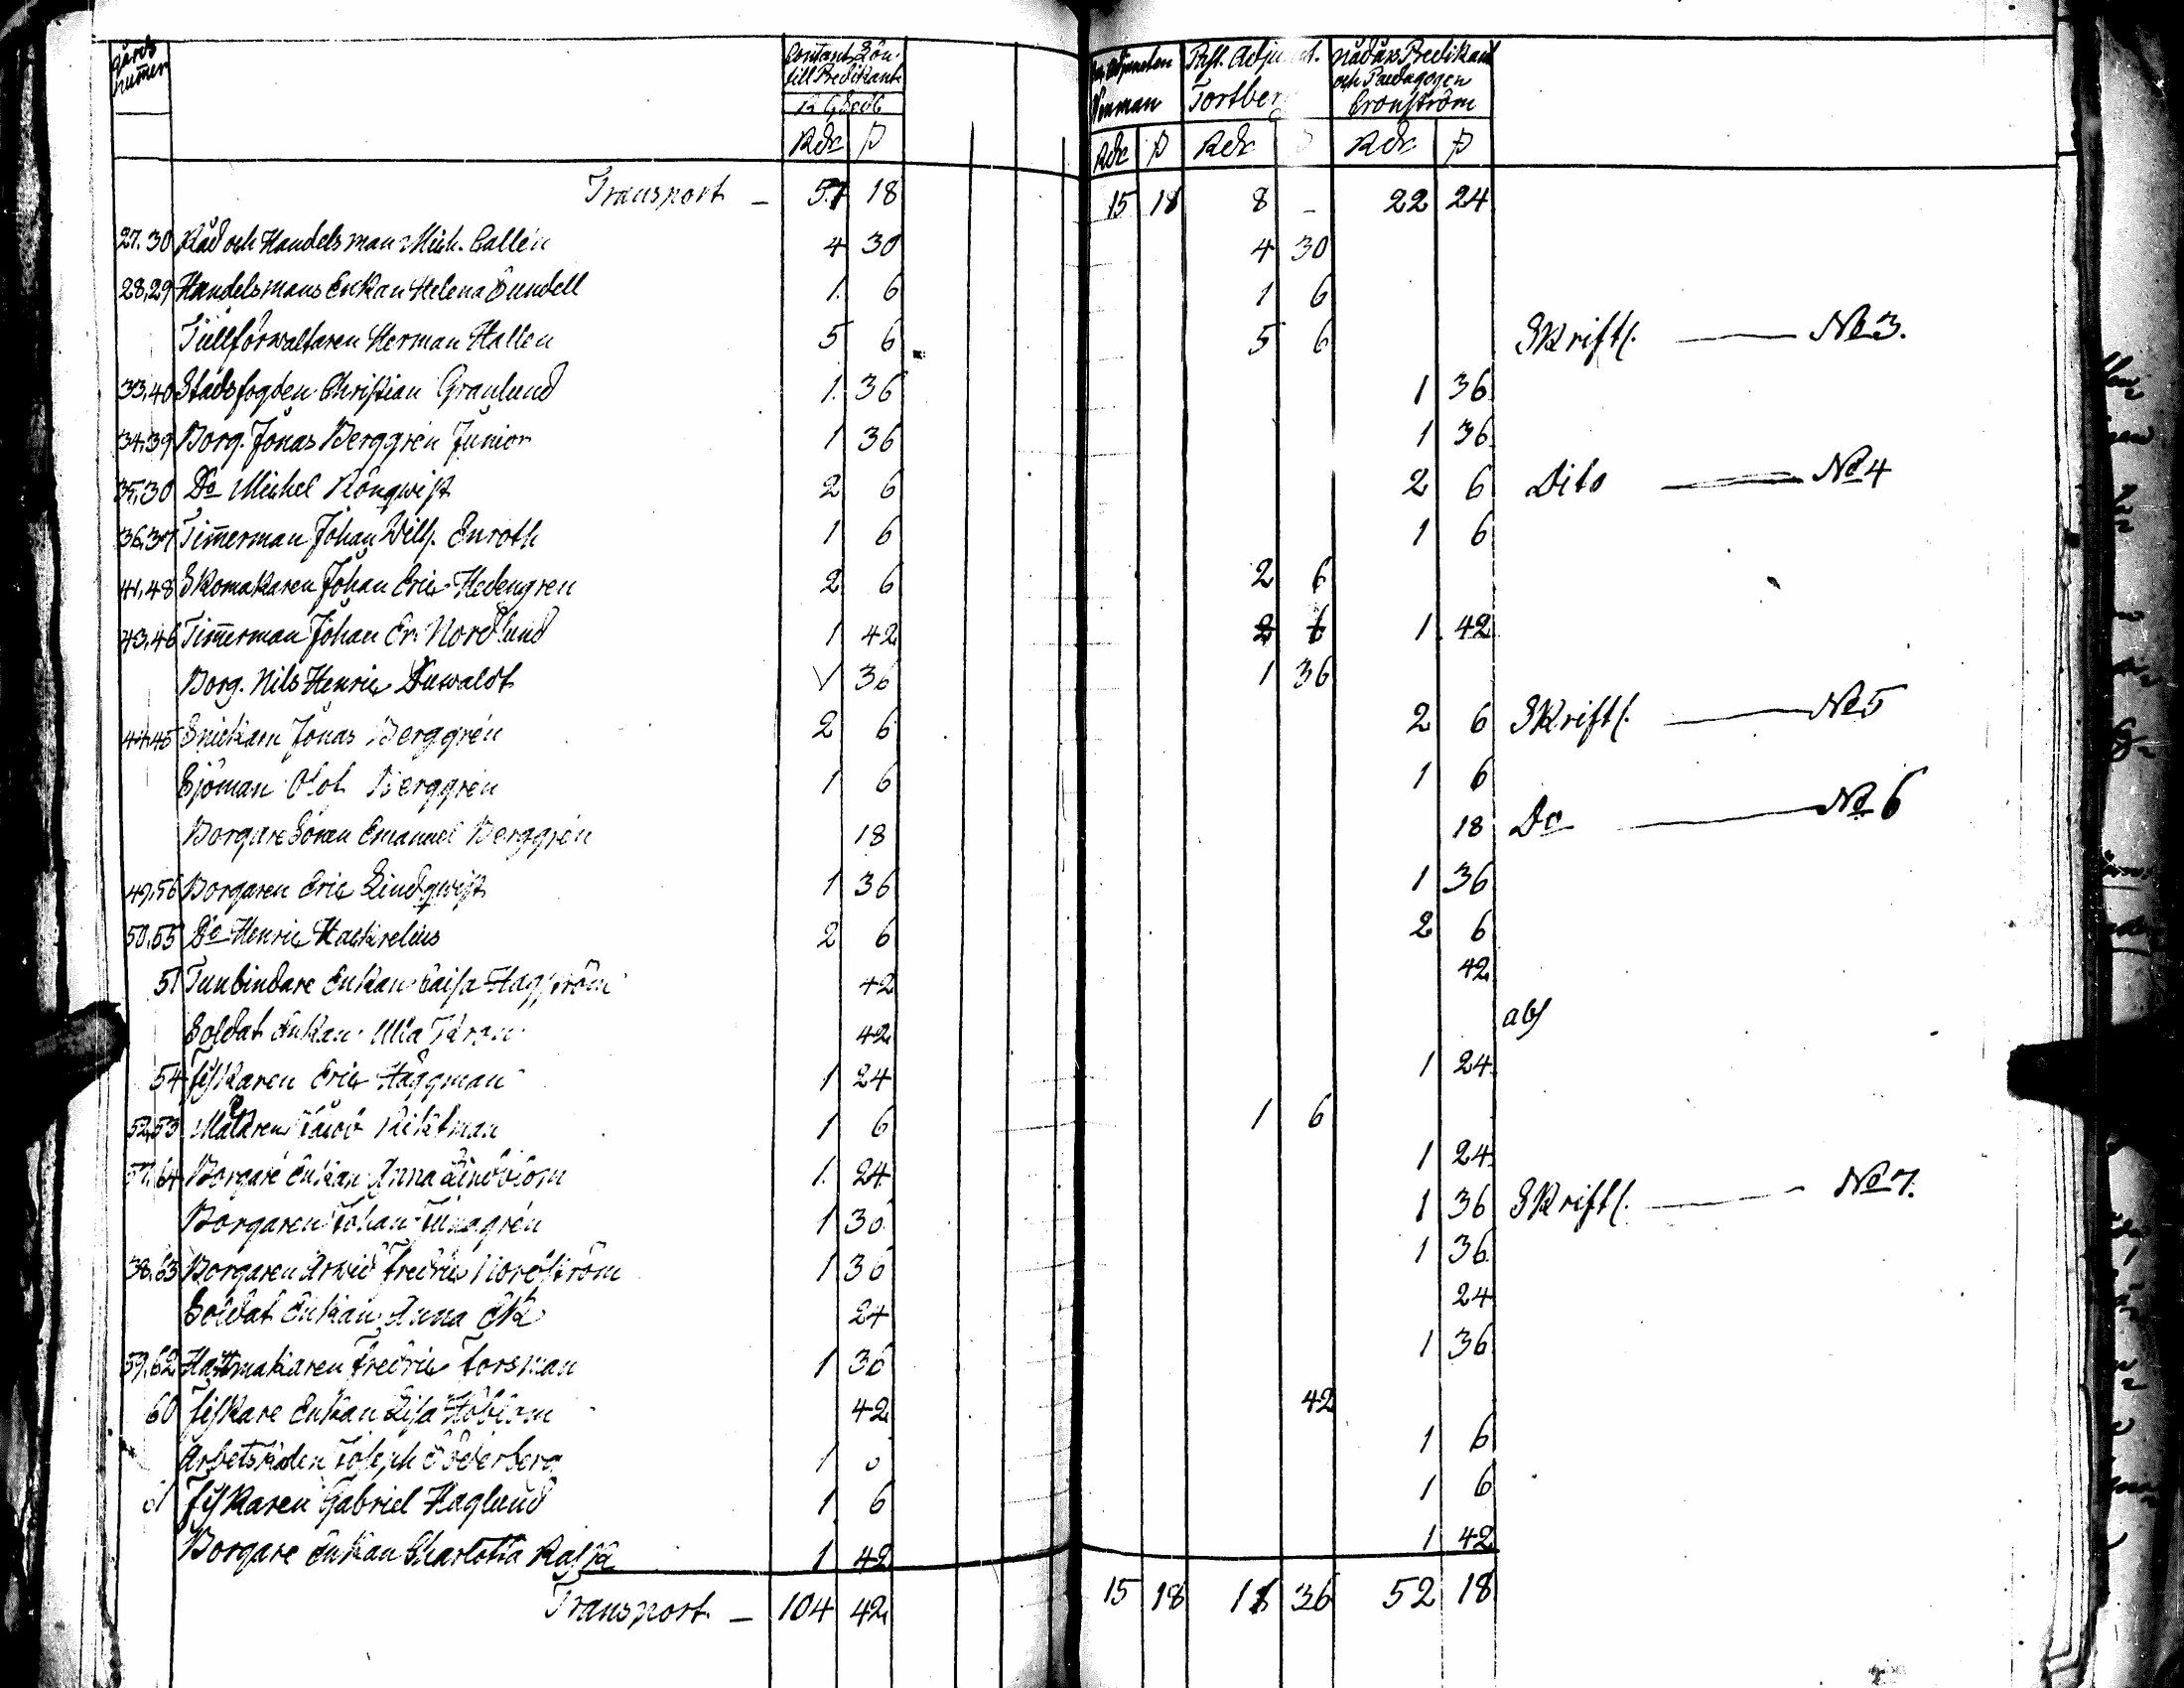 gårds nummer
Contant Lön till Predikant
Rdr β
Adjuncten Wenman
Past. Adjunct. Tortberg
nådårs Predikant och Paedagogen Cronström
Rdr β Rdr Rdr β
Transport — 51 18 15 18 8 – 22 24
27.30 Råd och Handelsman Mich. Callén 4 30 4 30
28,29 Handelsmans Enkan Helena Sundell 1. 6 1 6
Tullförwaltaren Herman Hallen 5 6 5 6 Skriftl. — No 3.
33,40 Stadsfogden Christian Granlund 1. 36 1 36
34,39 Borg. Jonas Berggrén Junior 1 36 1 36
35,30 Do Michel Rönqwist 2 6 2 6 Dito — No 4
36,37 Timmerman Johan Wilh. Enroth 1 6 1 6
41,48 Skomakaren Johan Eric Hedengren 2 6 2 6
43,46 Timmerman Johan Er. Nordlund 1 42 2 6 1 42
Borg. Nils Henric Duwaldt 1 36 1 36
44,45 Snickarn Jonas Berggrén 2 6 2 6 Skriftl. — No 5
Sjöman Olof Berggrén 1 6 1 6
Borgare Sonen Emanuel Berggrén 18 18 Do — No 6
49,56 Borgaren Eric Lindqwist 1 36 1 36
50,55 Do Henric Hackzelius 2 6 2 6
51 Tunbindare Enkan Caisa Hagström 42 42
Soldat Enkan Ulla 42 abs
54 Fiskaren Eric Häggman 1 24 1 24
52,53 Målaren Jacob Richtman 1 6 1 6
57,64 Borgare Enkan Anna Lindblom 1. 24 1 24
Borgaren Johan Ljunggrén 1 36 1 36 Skriftl. — No 7.
38,63 Borgaren Arwid Fredric Nordström 1 36 1 36
Soldat Enkan Anna Ek 24 24
59,62 Hattmakaren Fredric Forsman 1 36 1 36
60 Fiskare Enkan Lisa Höblom 42 42
Arbetskarlen Joseph Söderberg 1 6 1 6
61 Fiskaren Gabriel Haglund 1 6 1 6
Borgare Enkan Charlotta Rask 1 42 1 42
Transport. — 104 42 15 18 18 36 52 18